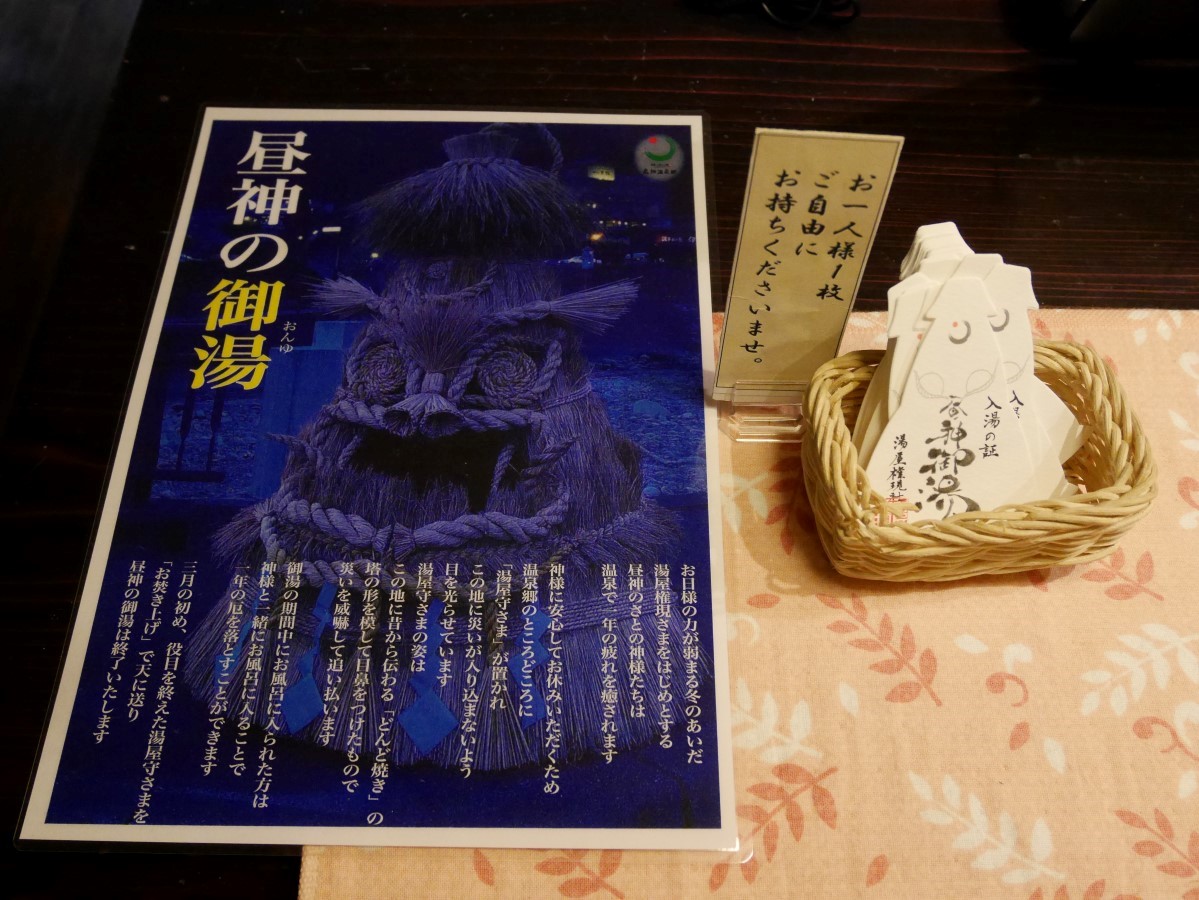 昼神の御湯
おんゆ
お日様の力が弱まる冬のあいだ
湯屋権現さまをはじめとする
昼神のさとの神様たちは
温泉で一年の疲れを癒されます
神様に安心してお休みいただくため
温泉郷のところどころに
「湯屋守さま」が置かれ
この地に災いが入り込まないよう
目を光らせています
湯屋守さまの姿は
この地に昔から伝わる「どんど焼き」の
塔の形を模して目鼻をつけたもので
災いを威嚇して追い払います
御湯の期間中にお風呂に入られた方は
神様と一緒にお風呂に入ることで
一年の厄を落とすことができます
三月の初め、役目を終えた湯屋守さまを
「お焚き上げ」で天に送り
昼神の御湯は終了いたします
お一人様1枚
ご自由に
お持ちくださいませ。
入湯の証
昼神御湯
湯屋権現社